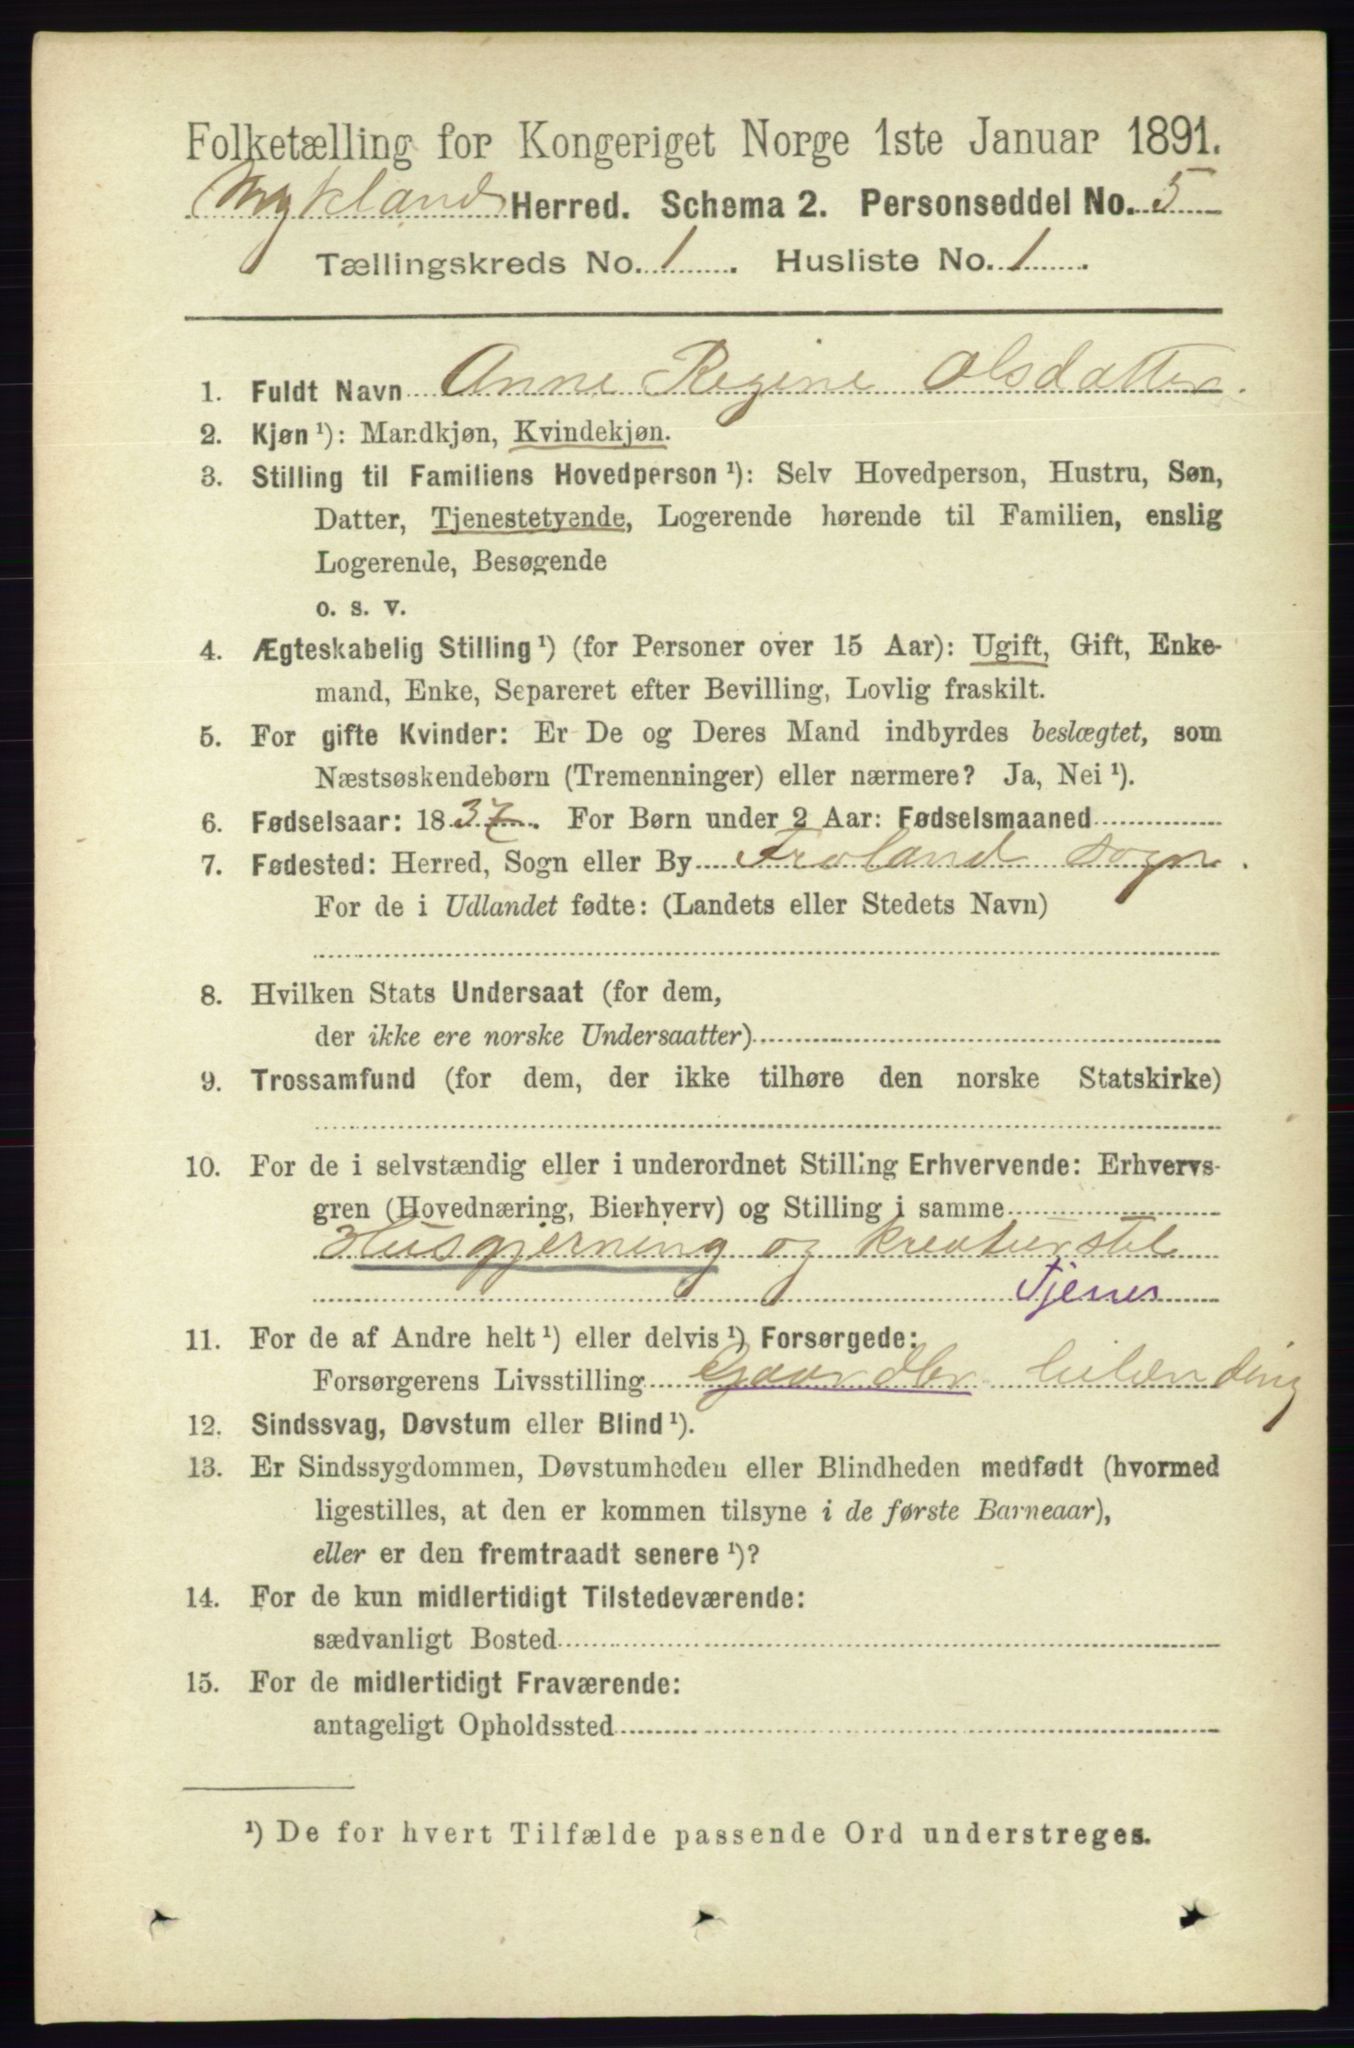 Folketælling for Kongeriget Norge 1ste Januar 1891.
Mykland Herred. Schema 2. Personseddel No. 5
Tællingskreds No. 1. Husliste No. 1.
1. Fuldt Navn Anne Regine Olsdatter.
2. Kjøn ¹): Mandkjøn, Kvindekjøn.
3. Stilling til Familiens Hovedperson ¹): Selv Hovedperson, Hustru, Søn,
Datter, Tjenestetyende, Logerende hørende til Familien, enslig
Logerende, Besøgende
o. s. v.
4. Ægteskabelig Stilling ¹) (for Personer over 15 Aar): Ugift, Gift, Enke-
mand, Enke, Separeret efter Bevilling, Lovlig fraskilt.
5. For gifte Kvinder: Er De og Deres Mand indbyrdes beslægtet, som
Næstsøskendebørn (Tremenninger) eller nærmere? Ja, Nei ¹).
6. Fødselsaar: 1837. For Børn under 2 Aar: Fødselsmaaned
7. Fødested: Herred, Sogn eller By Froland Sogn.
For de i Udlandet fødte: (Landets eller Stedets Navn)
8. Hvilken Stats Undersaat (for dem,
der ikke ere norske Undersaatter)
9. Trossamfund (for dem, der ikke tilhøre den norske Statskirke)
10. For de i selvstændig eller i underordnet Stilling Erhvervende: Erhvervs-
gren (Hovednæring, Bierhverv) og Stilling i samme
Husgjerning og kreaturstel
Tjenes
11. For de af Andre helt ¹) eller delvis ¹) Forsørgede:
Forsørgerens Livsstilling Gaardbr
12. Sindssvag, Døvstum eller Blind ¹).
13. Er Sindssygdommen, Døvstumheden eller Blindheden medfødt (hvormed
ligestilles, at den er kommen tilsyne i de første Barneaar),
eller er den fremtraadt senere ¹)?
14. For de kun midlertidigt Tilstedeværende:
sædvanligt Bosted
15. For de midlertidigt Fraværende:
antageligt Opholdssted
¹) De for hvert Tilfælde passende Ord understreges.